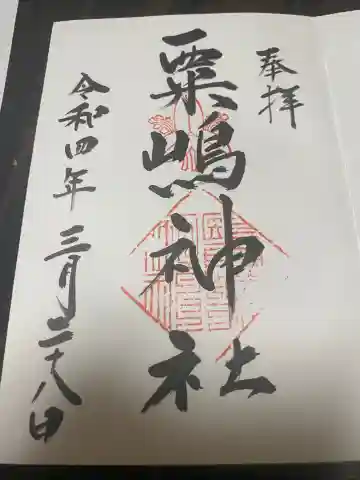 奉拝
粟嶋神社
令和四年三月二十八日